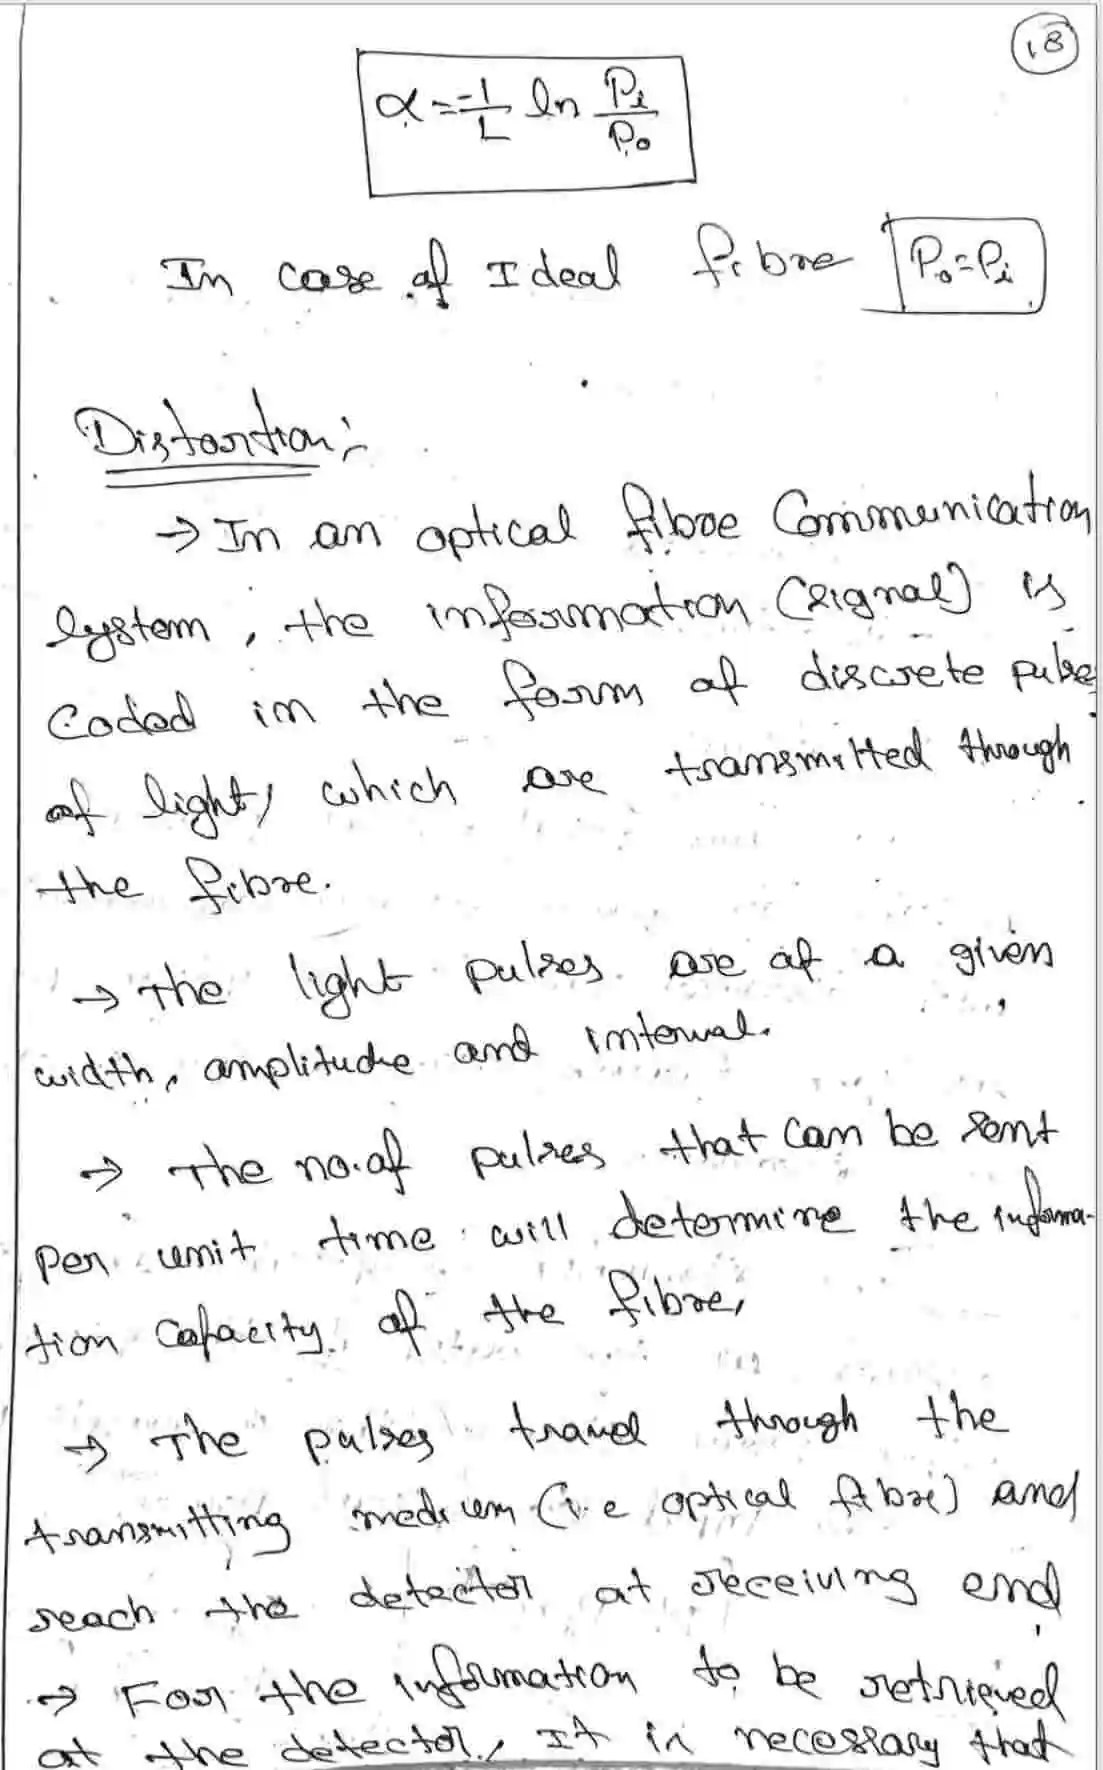 18
α = -1/L ln Pi/Po
In case of Ideal fibre Po=Pi
Distortion:-
→ In an optical fibre Communication
system, the information (signal) is
Coded in the form of discrete pulse
of light, which are transmitted through
the fibre.
→ The light pulses are of a given
width, amplitude and interval.
→ The no.of pulses that can be sent
per unit time will determine the informa-
tion capacity of the fibre,
→ The pulses travel through the
transmitting medium (i.e optical fibre) and
reach the detector at receiving end
→ For the information to be retrieved
at the detector, It is necessary that